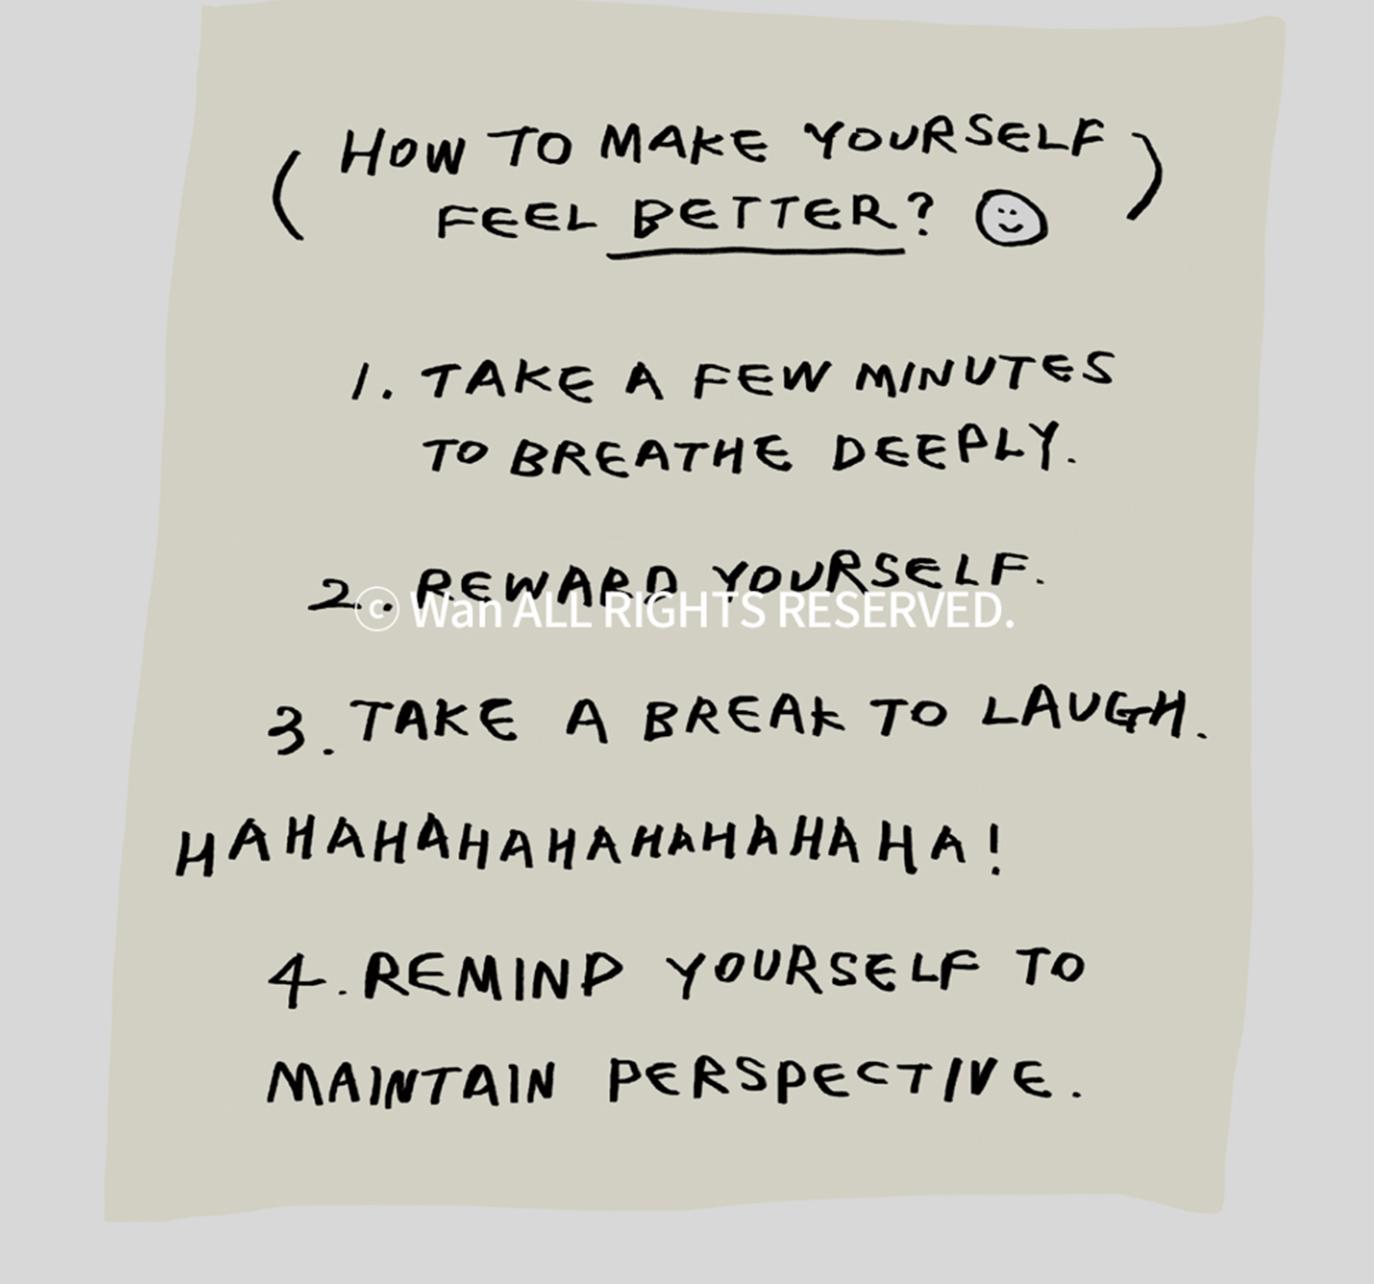 ( HOW TO MAKE YOURSELF
FEEL BETTER? )
1. TAKE A FEW MINUTES
TO BREATHE DEEPLY.
2. REWARD YOURSELF.
ⓒ Wan ALL RIGHTS RESERVED.
3. TAKE A BREAK TO LAUGH.
HAHAHAHAHAHAHAHAHA!
4. REMIND YOURSELF TO
MAINTAIN PERSPECTIVE.